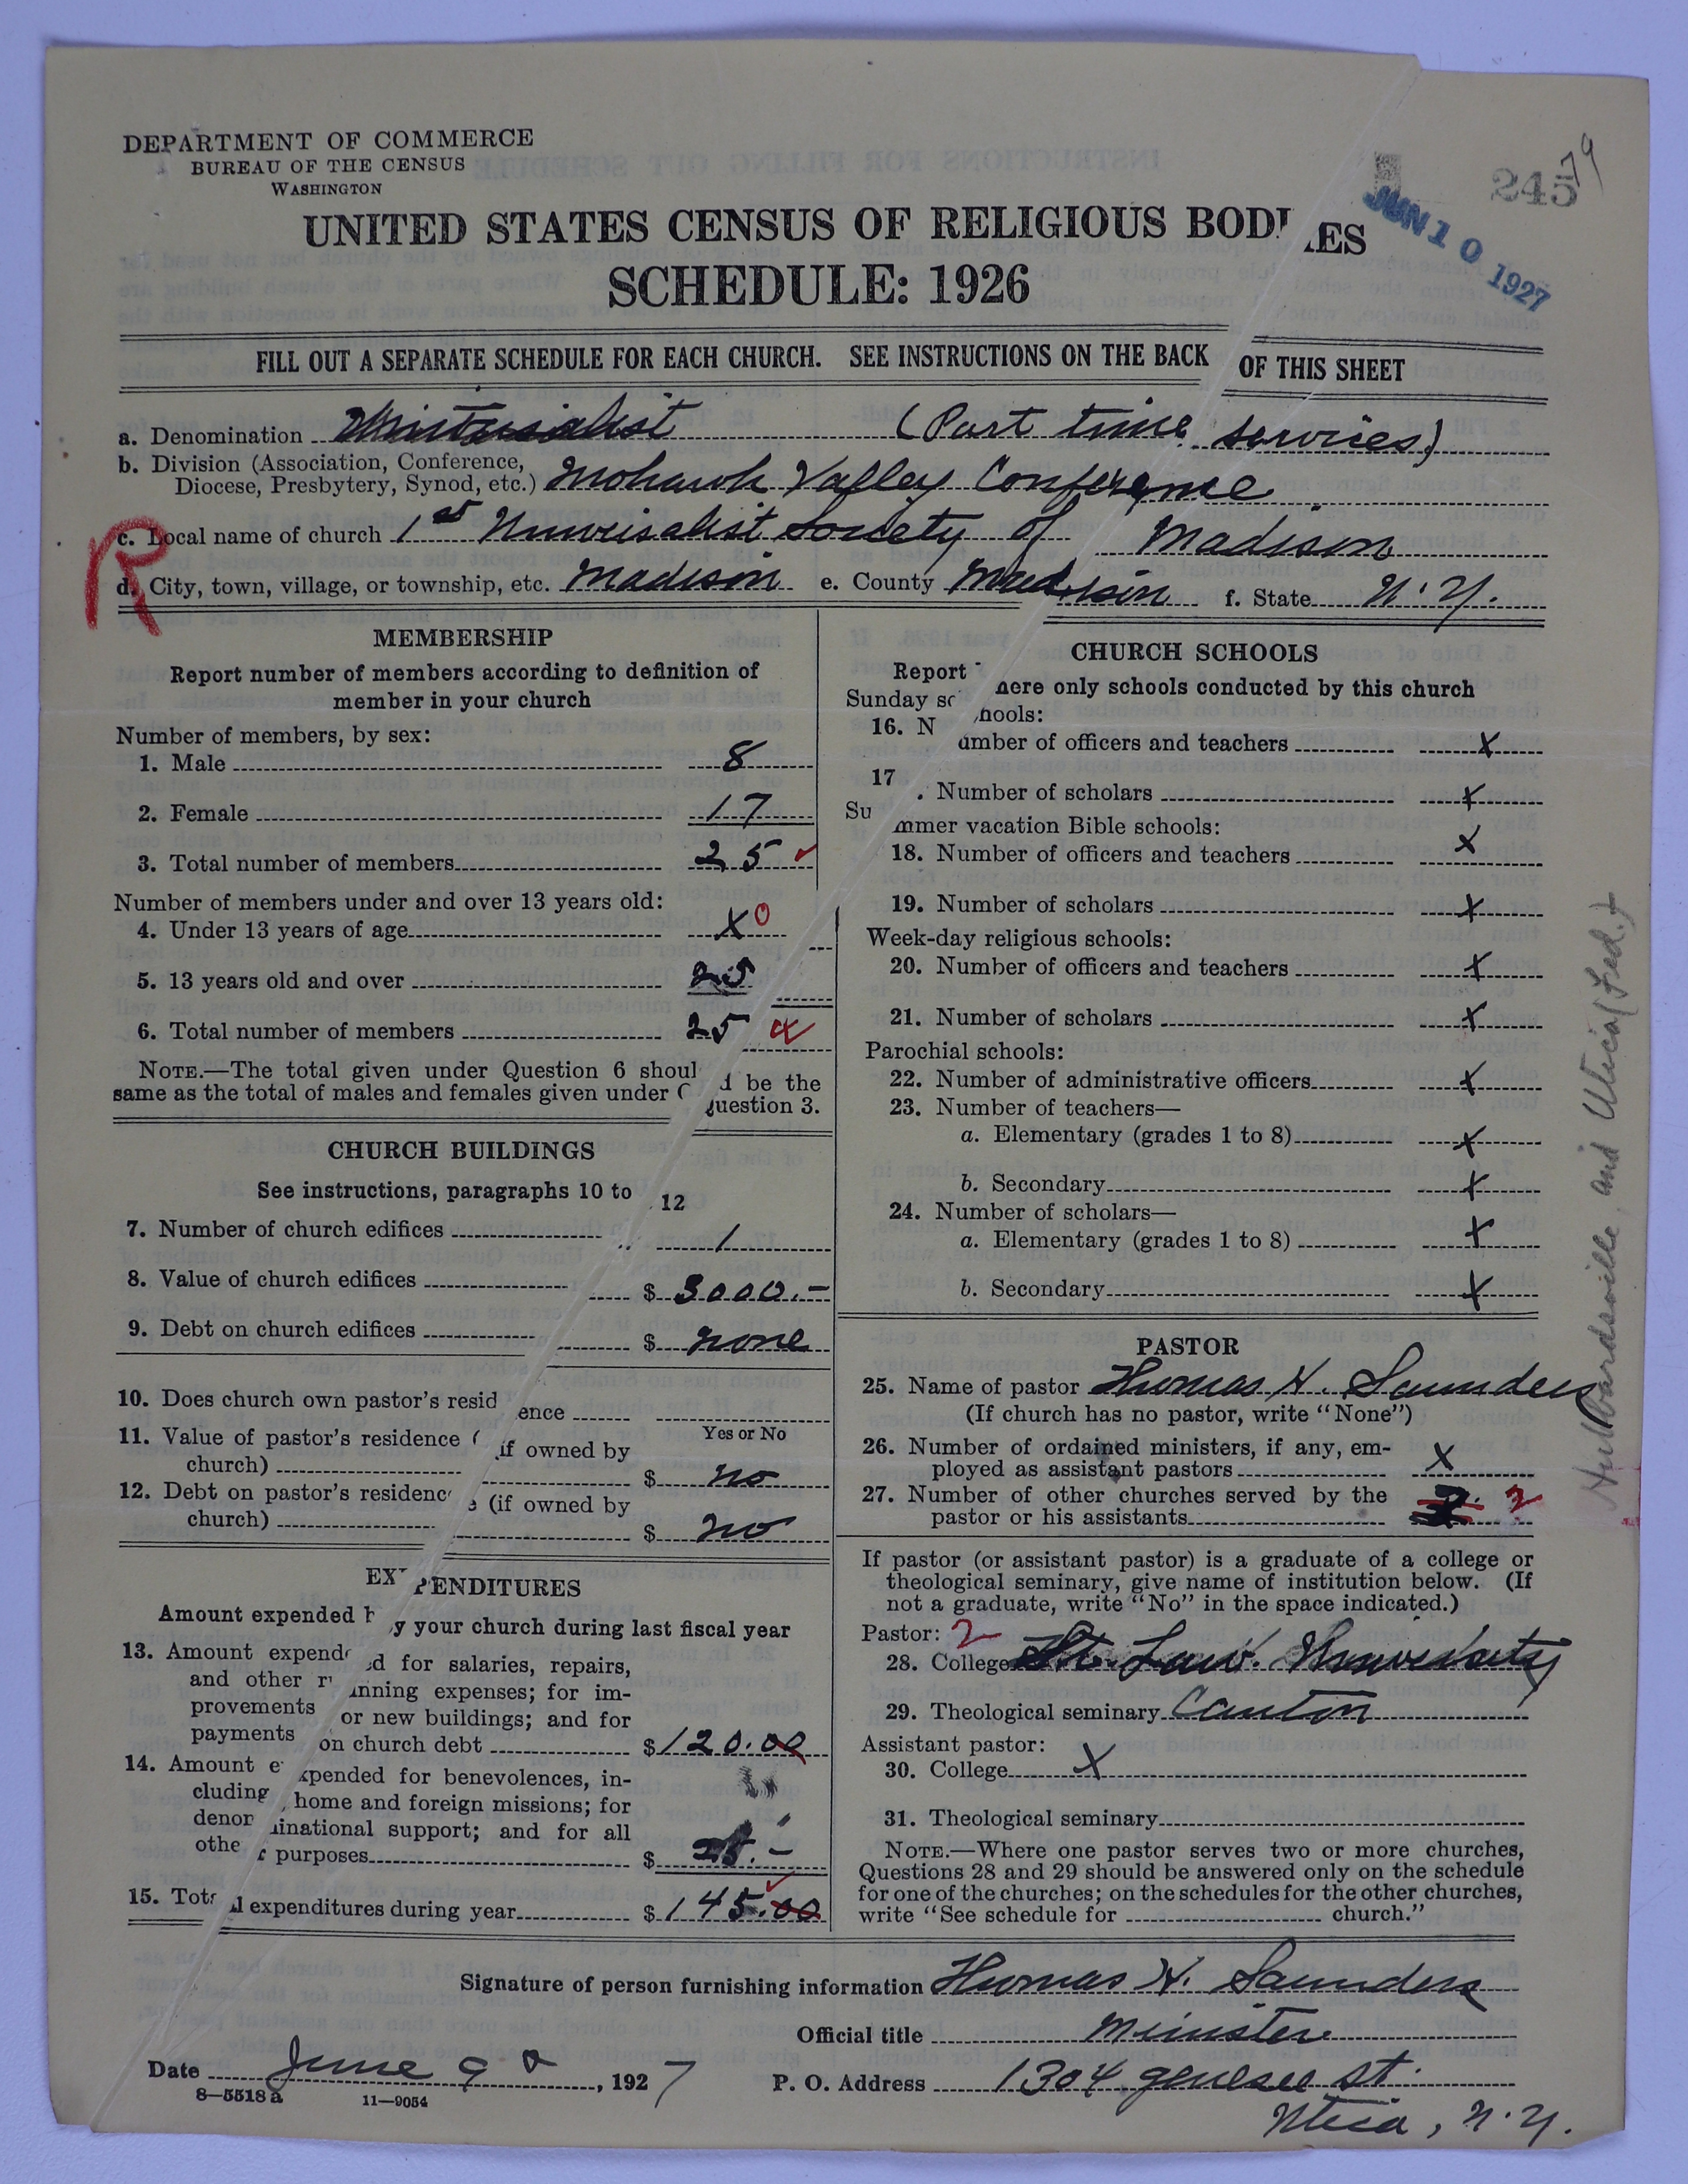 DEPARTMENT OF COMMERCE
BUREAU OF THE CENSUS
WASHINGTON
24579
JUN 10 1927
UNITED STATES CENSUS OF RELIGIOUS BODIES
SCHEDULE: 1926
FILL OUT A SEPARATE SCHEDULE FOR EACH CHURCH. SEE INSTRUCTIONS ON THE BACK OF THIS SHEET
a. Denomination Universalist (Part time services)
b. Division (Association, Conference,
Diocese, Presbytery, Synod, etc.) Mohawk Valley Conference
R
c. Local name of church 1st Universalist Society of Madison
d. City, town, village, or township, etc. Madison e. County Madison f. State N. Y.
MEMBERSHIP
Report number of members according to definition of
member in your church
Number of members, by sex:
1. Male 8
2. Female 17
3. Total number of members 25
Number of members under and over 13 years old:
4. Under 13 years of age X 0
5. 13 years old and over 25
6. Total number of members 25
NOTE.—The total given under Question 6 should be the
same as the total of males and females given under Question 3.
CHURCH BUILDINGS
See instructions, paragraphs 10 to 12
7. Number of church edifices 1
8. Value of church edifices $ 3000.-
9. Debt on church edifices $ none
10. Does church own pastor's residence
Yes or No
11. Value of pastor's residence (if owned by
church) $ no
12. Debt on pastor's residence (if owned by
church) $ no
EXPENDITURES
Amount expended by your church during last fiscal year
13. Amount expended for salaries, repairs,
and other running expenses; for im-
provements or new buildings; and for
payments on church debt $ 120.00
14. Amount expended for benevolences, in-
cluding home and foreign missions; for
denominational support; and for all
other purposes $ 25.-
15. Total expenditures during year $ 145.00
CHURCH SCHOOLS
Report here only schools conducted by this church
Sunday schools:
16. Number of officers and teachers X
17. Number of scholars X
Summer vacation Bible schools:
18. Number of officers and teachers X
19. Number of scholars X
Week-day religious schools:
20. Number of officers and teachers X
21. Number of scholars X
Parochial schools:
22. Number of administrative officers X
23. Number of teachers—
a. Elementary (grades 1 to 8) X
b. Secondary X
24. Number of scholars—
a. Elementary (grades 1 to 8) X
b. Secondary X
PASTOR
25. Name of pastor Thomas H. Saunders
(If church has no pastor, write "None")
26. Number of ordained ministers, if any, em-
ployed as assistant pastors X
27. Number of other churches served by the
pastor or his assistants 2. 2
If pastor (or assistant pastor) is a graduate of a college or
theological seminary, give name of institution below. (If
not a graduate, write "No" in the space indicated.)
Pastor: 2
28. College St. Law. University
29. Theological seminary Canton
Assistant pastor:
30. College X
31. Theological seminary
NOTE.—Where one pastor serves two or more churches,
Questions 28 and 29 should be answered only on the schedule
for one of the churches; on the schedules for the other churches,
write "See schedule for church."
Hubbardsville, and Utica (Fed.)
Signature of person furnishing information Thomas H. Saunders
Official title Minister
Date June 9, 1927 P. O. Address 1304 genesee St.
Utica, N. Y.
8—5518 a 11—9054